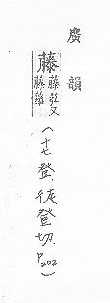 廣韻
藤 藤苰又
藤藟
(十七登，徒登切，P.202)